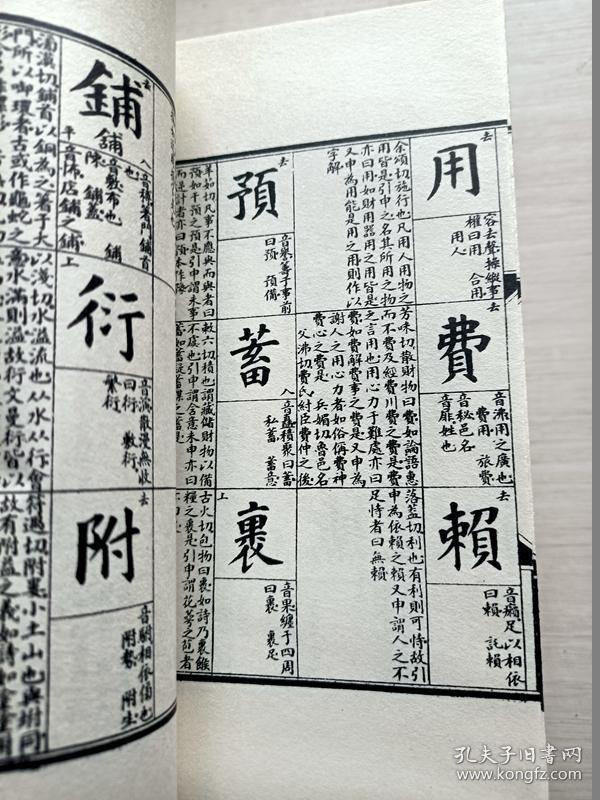 用
去
容去聲操縱事
權曰用 合用
用人
余頌切施行也凡用人用物之
用皆是引申之名其所用之物
亦曰用如財用器用之用皆是
又申為用能是用之用則作以
字解
費
去
音沸用之廣也
費用 旅費
音秘邑名
音腓姓也
芳味切散財物曰費如論語惠
而不費及經費川費之費是費
之言用也用心力于難處亦曰
費如費解費事之費是又申為
謝人之用心力者如俗稱費神
費心之費是 兵媚切魯邑名
父沸切費氏紂臣費仲之後
賴
去
音癩足以相依
曰賴 託賴
落蓋切利也有利則可恃故引
申為依賴之賴又申謂人之不
足恃者曰無賴
預
去
音譽籌于事前
曰預 預備
羊如切凡事不應與而與者曰
預如干預之預是引申謂未事
而逆計者亦曰預本作豫
蓄
入
音畜積聚曰蓄
私蓄 蓄意
敕六切積也謂藏儲財物以備
不虞也引申謂含意未申亦曰
蓄如蓄疑蓄謀之蓄是
裹
上
音果纏于四周
曰裹 裹足
古火切包物曰裹如詩乃裹餱
糧之裹是引申謂花萼之苞者
亦曰裹
鋪
去
舖
入
著門 鋪首
也
音敷布也 鋪
陳 鋪蓋
平
音怖店鋪之鋪
切鋪首以銅為之著于大
門所以啣環者古或作龜蛇之
衍
上
音演散漫無收
曰衍 敷衍
繁衍
以淺切水溢流也从水从行會
意水滿則溢故衍文曼衍皆以
附
去
音駙相依倚也
附麗 附生
符遇切附婁小土山也與坿同
故有附益之義如詩如塗塗附
孔夫子旧书网
www.kongfz.com